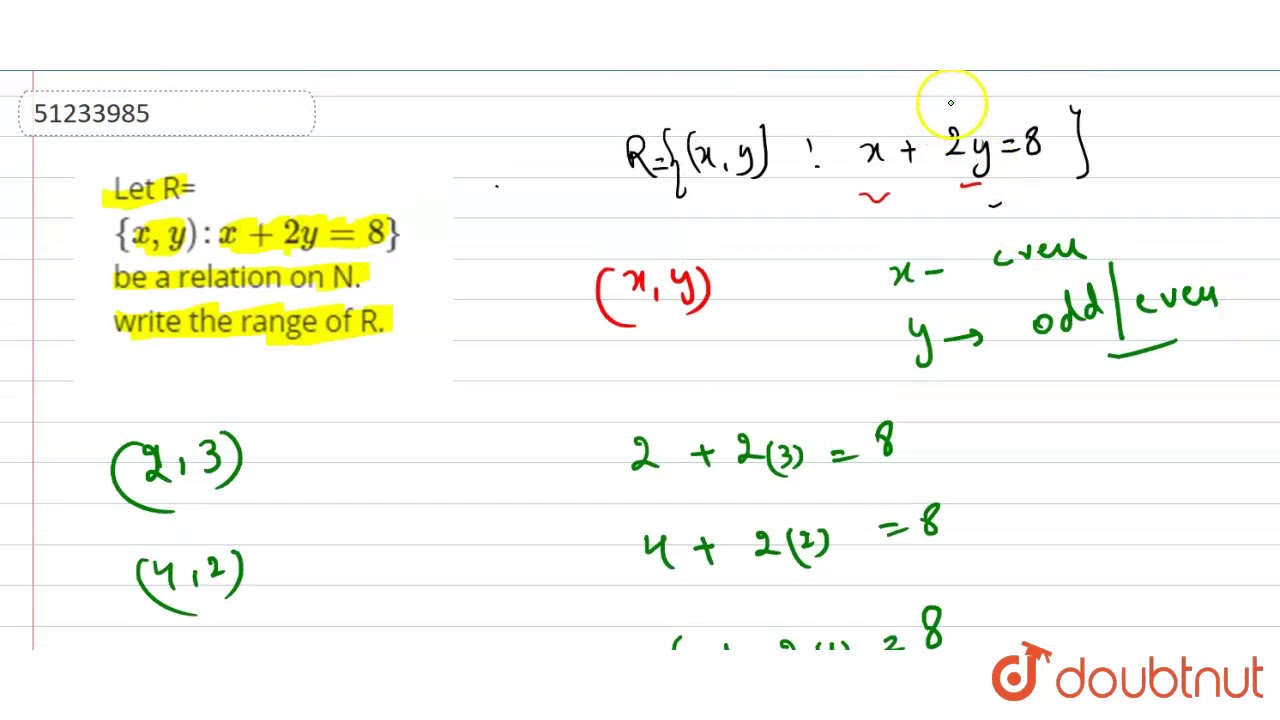 51233985
R={(x,y] : x + 2y=8 }
Let R=
{x, y) : x + 2y = 8}
be a relation on N.
write the range of R.
(x, y)
x - even
y → odd/even
(2,3)
2 + 2(3) = 8
(4,2)
4 + 2(2) = 8
= 8
doubtnut